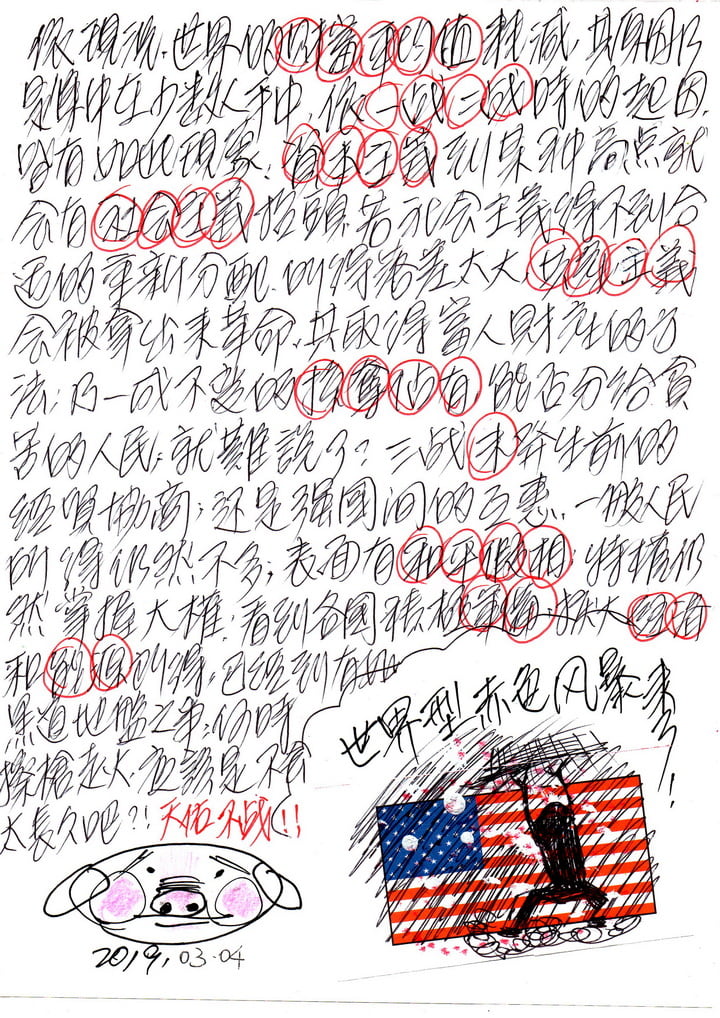 依現況.世界的均值.耗減.其原因乃
是集中在少數人手中,依一战二战時的起因.
皆有如此現象:資本主義到某种高点就
会有社会主義抬頭.若社会主義得不到合
适的重新分配.所得差太大.共產主義
会被拿出來革命.其取得富人財產的方
法:乃一成不变的佔有能否分給貧
苦的人民:就難說了?三战未發生前的
經貿協商:还是強國间的互惠.一般人民
所得仍然不多:表面有和平假相:特权仍
然掌握大权:看到各國積極軍備.擴大經濟
和所得.已經到有如
黑道地盤之争:何時
擦槍走火.应該是不会
太長久吧?!天佑不战!!
世界型赤色风暴來了!
2019.03.04